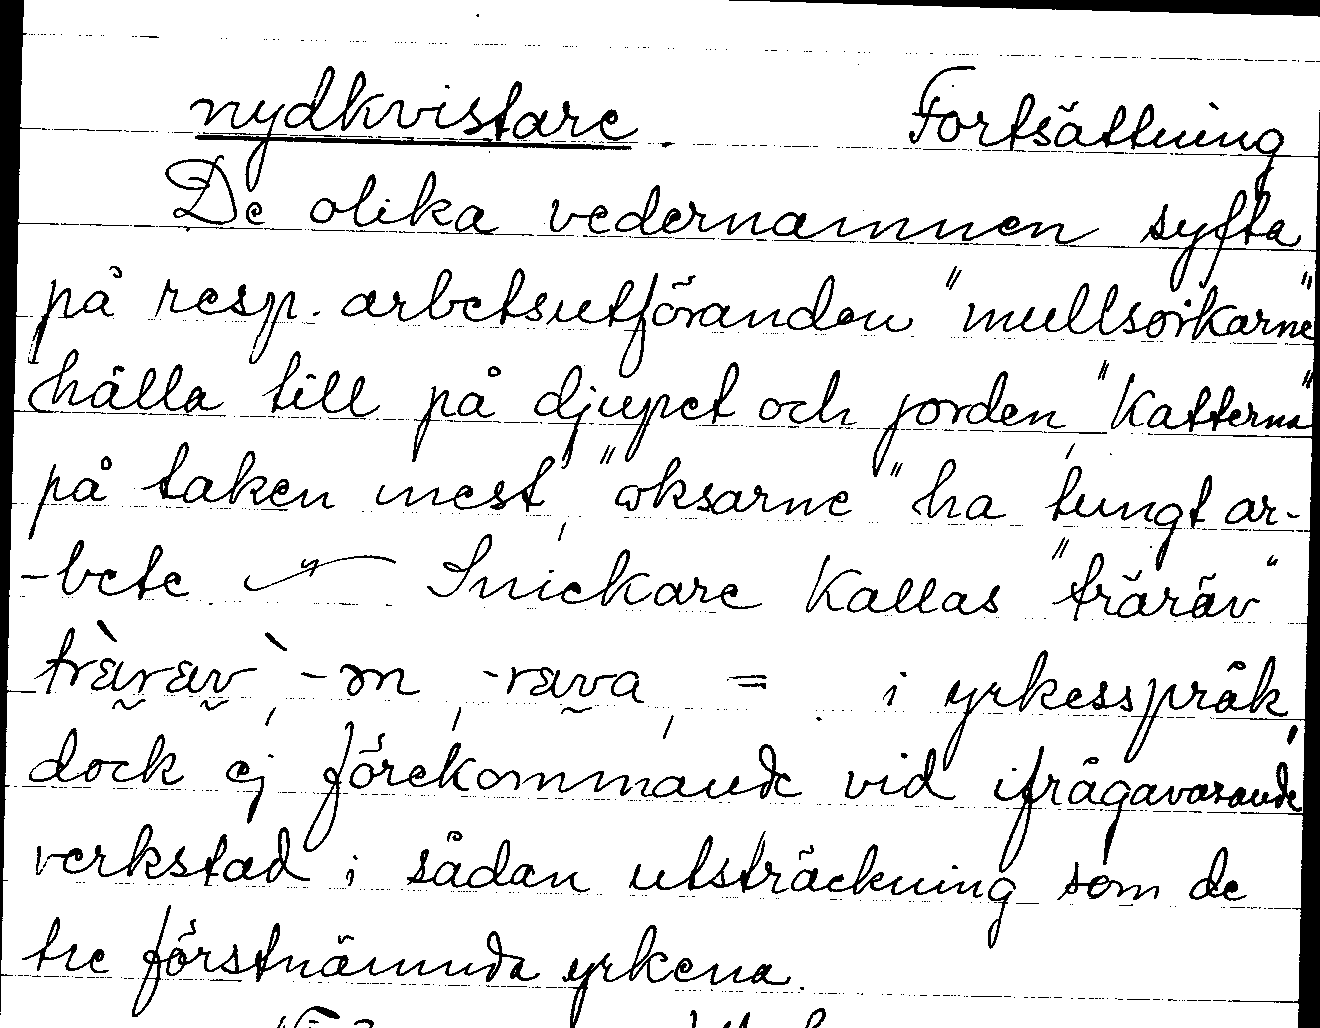 nydkvistare. Fortsättning
De olika vedernamnen syfta
på resp. arbetsutföranden "mullsorkarne"
hålla till på djupet och jorden, "Katterna"
på taken mest, "oksarne" ha tungt ar-
-bete Snickare Kallas "träräv"
-m, -rava, = i yrkesspråk,
dock ej förekommande vid ifrågavarande
verkstad i sådan utsträckning som de
tre förstnämnda yrkena.